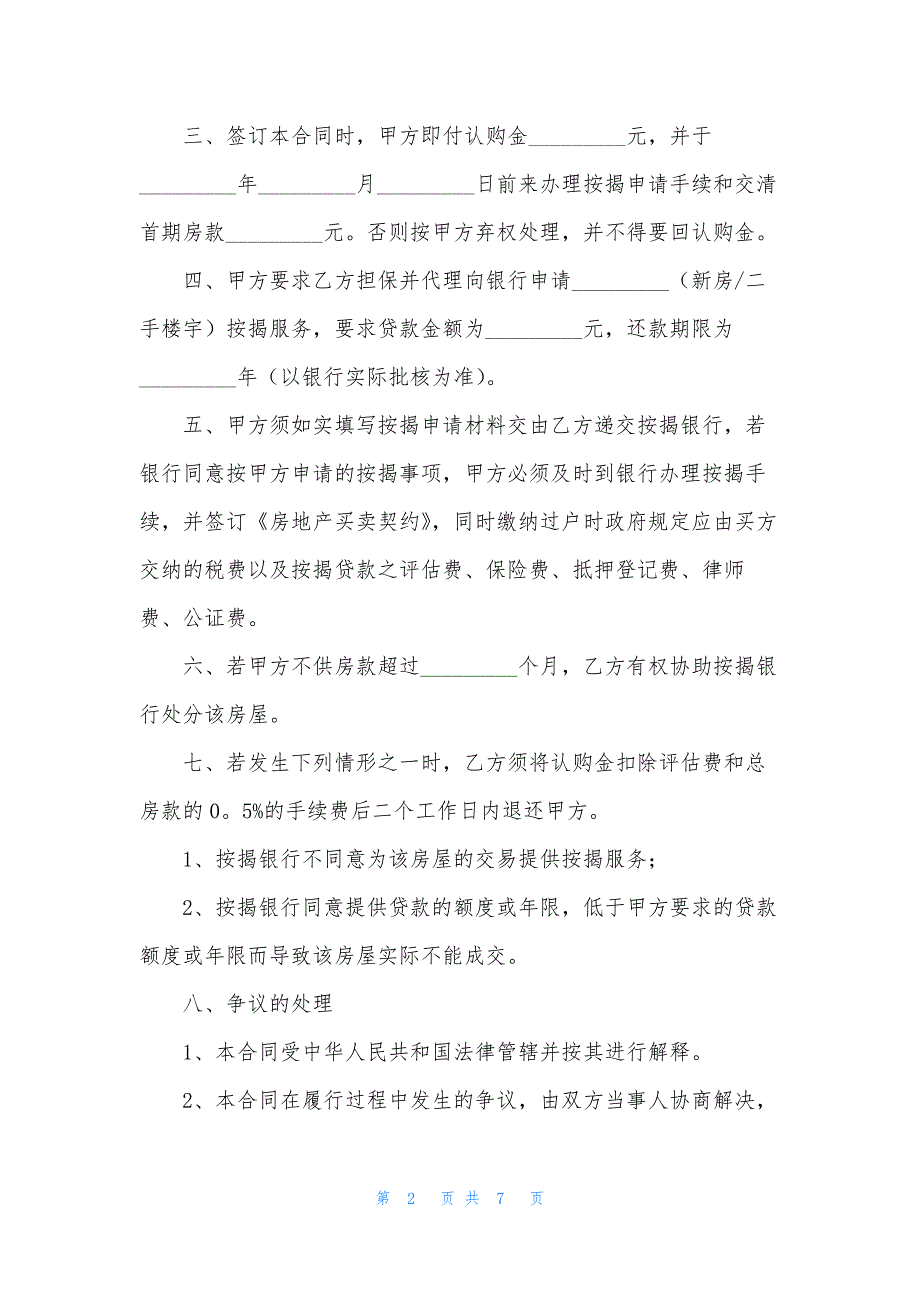 三、签订本合同时，甲方即付认购金_________元，并于
_________年_________月_________日前来办理按揭申请手续和交清
首期房款_________元。否则按甲方弃权处理，并不得要回认购金。
四、甲方要求乙方担保并代理向银行申请_________（新房/二
手楼宇）按揭服务，要求贷款金额为_________元，还款期限为
_________年（以银行实际批核为准）。
五、甲方须如实填写按揭申请材料交由乙方递交按揭银行，若
银行同意按甲方申请的按揭事项，甲方必须及时到银行办理按揭手
续，并签订《房地产买卖契约》，同时缴纳过户时政府规定应由买方
交纳的税费以及按揭贷款之评估费、保险费、抵押登记费、律师
费、公证费。
六、若甲方不供房款超过_________个月，乙方有权协助按揭银
行处分该房屋。
七、若发生下列情形之一时，乙方须将认购金扣除评估费和总
房款的0。5%的手续费后二个工作日内退还甲方。
1、按揭银行不同意为该房屋的交易提供按揭服务；
2、按揭银行同意提供贷款的额度或年限，低于甲方要求的贷款
额度或年限而导致该房屋实际不能成交。
八、争议的处理
1、本合同受中华人民共和国法律管辖并按其进行解释。
2、本合同在履行过程中发生的争议，由双方当事人协商解决，
第 2 页 共 7 页